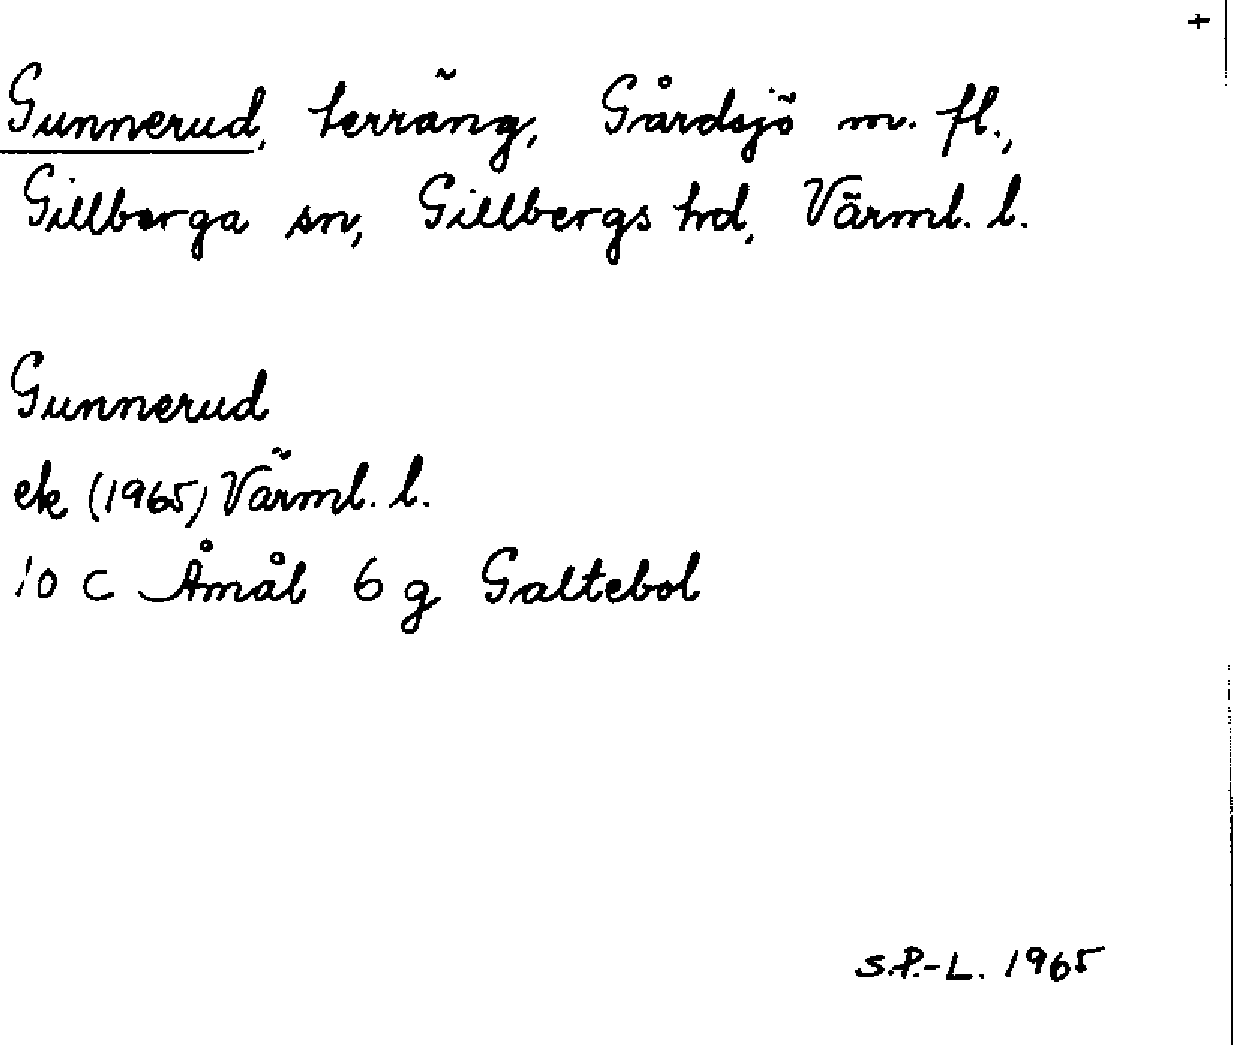 +
Gunnerud, terräng, Gårdsjö m. fl.,
Gillberga sn, Gillbergs hd, Värml. l.
Gunnerud
ek (1965) Värml. l.
10 C Åmål 6 g Galtebol
S.P.-L. 1965